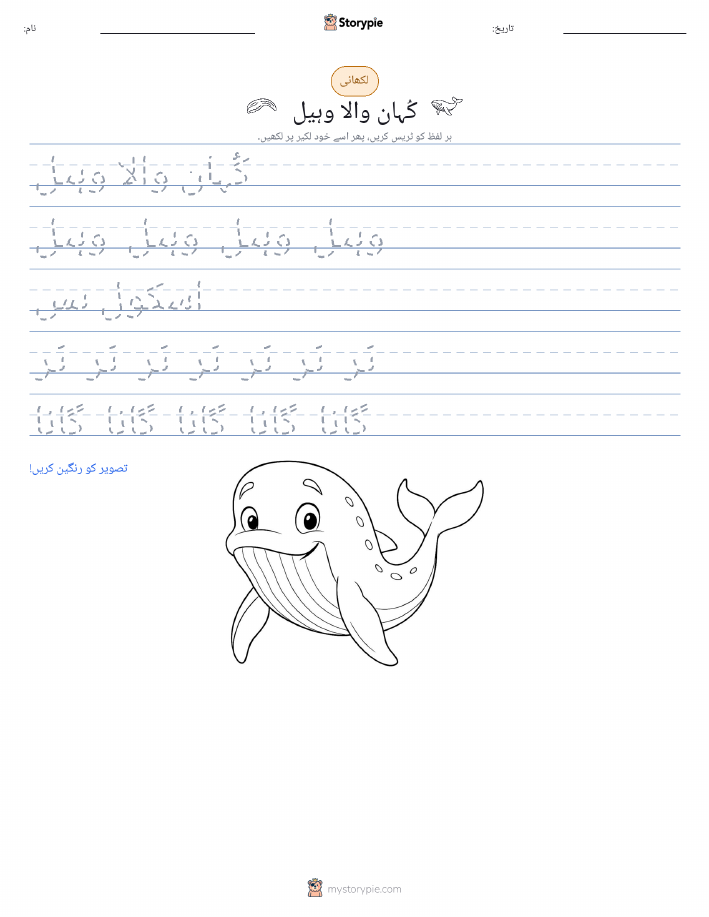 نام:
Storypie
تاریخ:
لکھائی
کُہان والا وہیل
ہر لفظ کو ٹریس کریں، پھر اسے خود لکیر پر لکھیں۔
کُہان والا وہیل
وہیل وہیل وہیل وہیل
نَر نَر نَر نَر نَر نَر نَر
گانا گانا گانا گانا گانا
تصویر کو رنگین کریں!
mystorypie.com